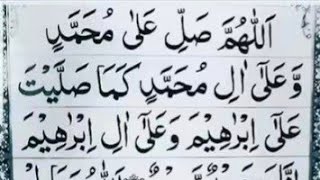 اَللّٰهُمَّ صَلِّ عَلٰى مُحَمَّدٍ
وَّعَلٰٓى اٰلِ مُحَمَّدٍ كَمَا صَلَّيْتَ
عَلٰٓى اِبْرٰهِيْمَ وَعَلٰٓى اٰلِ اِبْرٰهِيْمَ